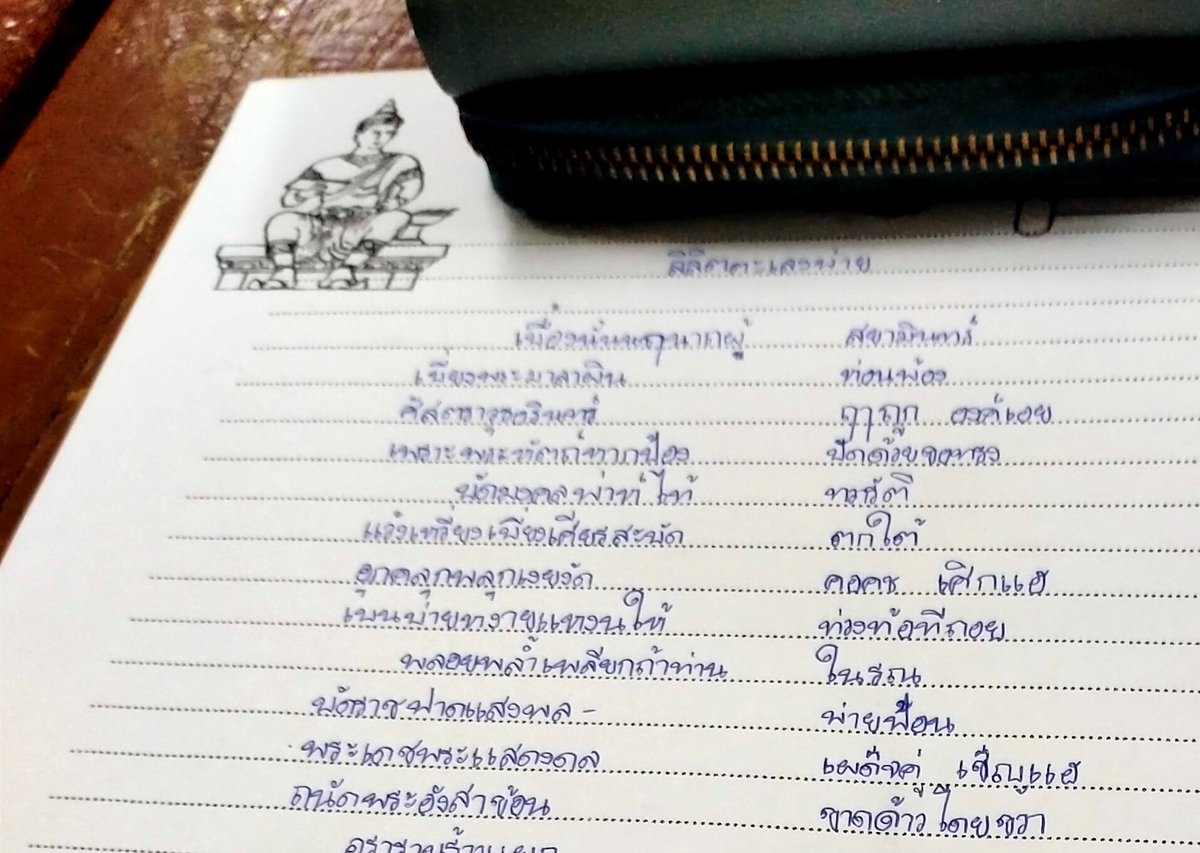 ลิลิตตะเลงพ่าย
เบื้องนั้นนฤนาถผู้ สยามินทร์
เบี่ยงพระมาลาผิน ห่อนพ้อง
ศัสตราวุธอรินทร์ ฤๅถูก องค์เอย
เพราะพระหัตถ์หากป้อง ปัดด้วยขอทรง
บัดมงคลพ่าห์ไท้ ทวารัติ
แว้งเหวี่ยงเบี่ยงเศียรสะบัด ตกใต้
อุกคลุกพลุกเงยงัด คอคช เศิกแฮ
เบนบ่ายหงายแหงนให้ ท่วงท้อทีถอย
พลอยพล้ำเพลียกถ้าท่าน ในรณ
บัดราชฟาดแสงพล- พ่ายฟ้อน
พระเดชพระแสดงดล เผด็จคู่ เข็ญแฮ
ถนัดพระอังสาข้อน ขาดด้าวโดยขวา